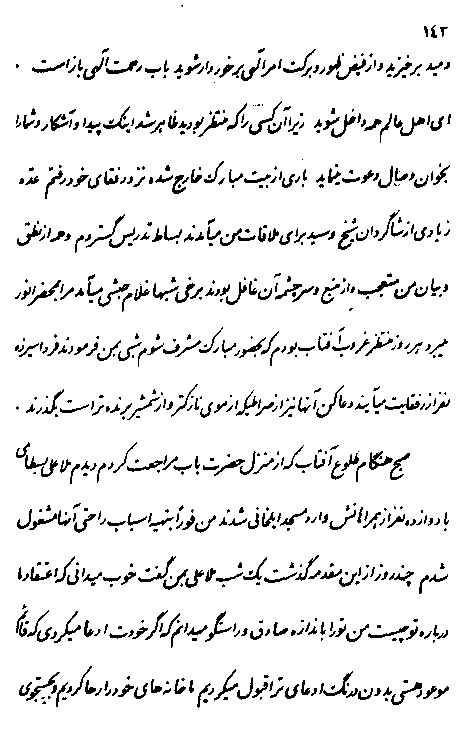 ۱۴۳
دمید برخیزید و از فیض ظهور و برکت امر الهی برخوردار شوید باب رحمت الهی باز است .
ای اهل عالم همه داخل شوید زیرا آن کسی را که منتظر بودید ظاهر شد اینک پیدا و آشکار و شما را
بخوان وصال دعوت مینماید باری از بیت مبارک خارج شده نزد رفقای خود رفتم عده
زیادی از شاگردان شیخ و سید برای ملاقات من میآمدند بساط تدریس گستردم و همه از نطق
و بیان من متعجب و از منبع و سرچشمه آن غافل بودند برخی شبها غلام حبشی میآمد مرا بمحضر انور
میبرد هر روز منتظر غروب آفتاب بودم که بحضور مبارک مشرف شوم شبی بمن فرمودند فردا سیزده
نفر از رفقایت میآیند دعا کن آنها نیز از صراطیکه از موی نازکتر و از شمشیر برنده تر است بگذرند .
صبح هنگام طلوع آفتاب که از منزل حضرت باب مراجعت کردم دیدم ملا علی بسطامی
با دوازده نفر از همراهانش وارد مسجد ایلخانی شدند من فوراً بتهیه اسباب راحتی آنها مشغول
شدم چند روز از این مقدمه گذشت یک شب ملا علی بمن گفت خوب میدانی که اعتقاد ما
درباره تو چیست من تو را باندازه صادق و راستگو میدانم که اگر خودت ادعا میکردی که قائم
موعود هستی بدون درنگ ادعای ترا قبول میکردیم ما خانه های خود را رها کردیم و بجستجوی